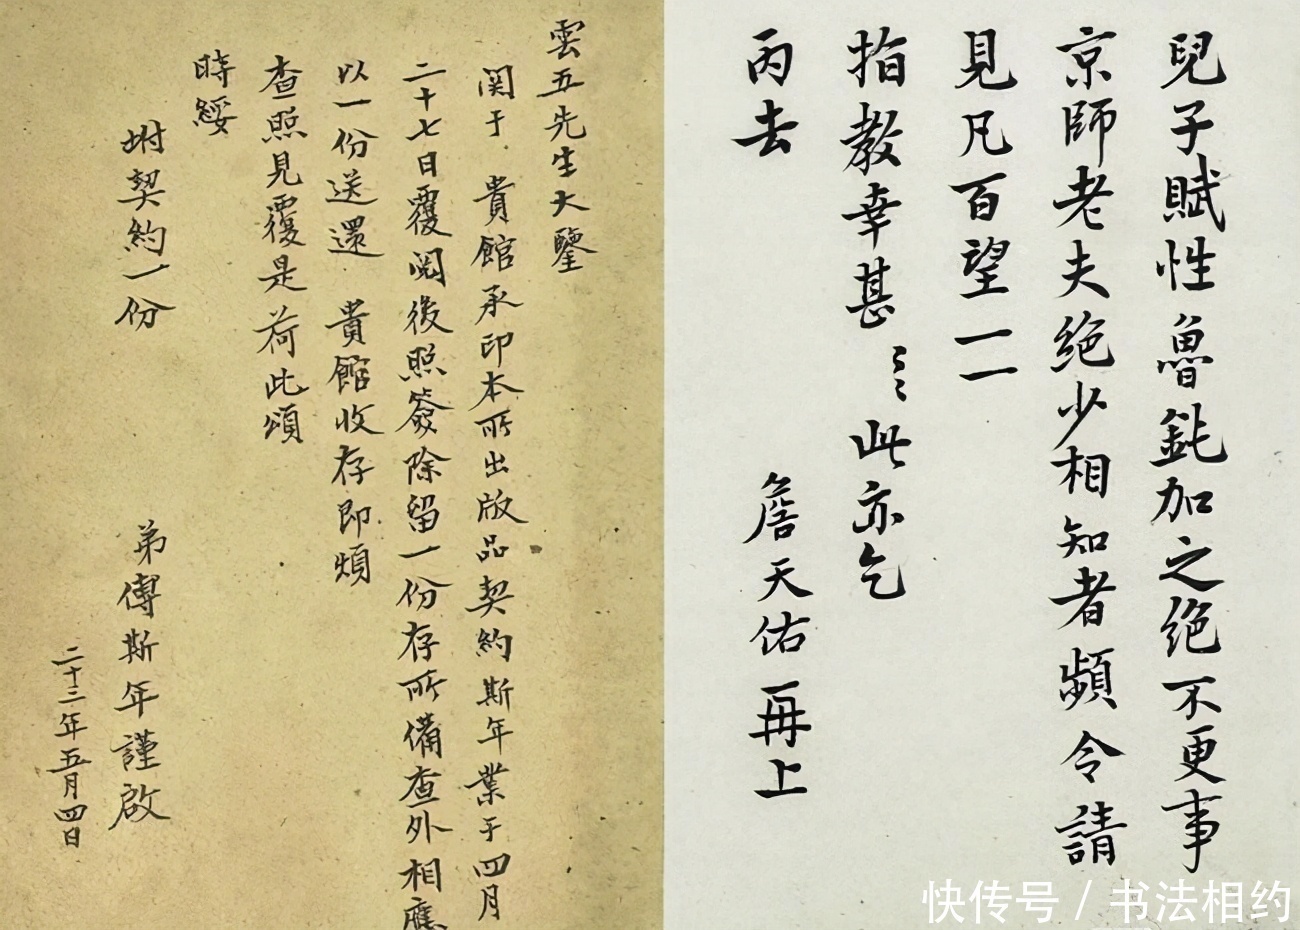 雲五先生大鑒
関于 貴館承印本所出版品契約斯年業于四月
二十七日覆閱後照簽除留一份存所備查外相應
以一份送還 貴館收存即煩
查照見覆是荷此頌
時綏
坿契約一份
弟傅斯年謹啟
二十三年五月四日
兒子賦性魯鈍加之绝不更事
京師老夫絕少相知者頻令請
見凡百望一一
指教幸甚〻〻此亦乞
丙去
詹天佑再上
快传号 / 书法相约